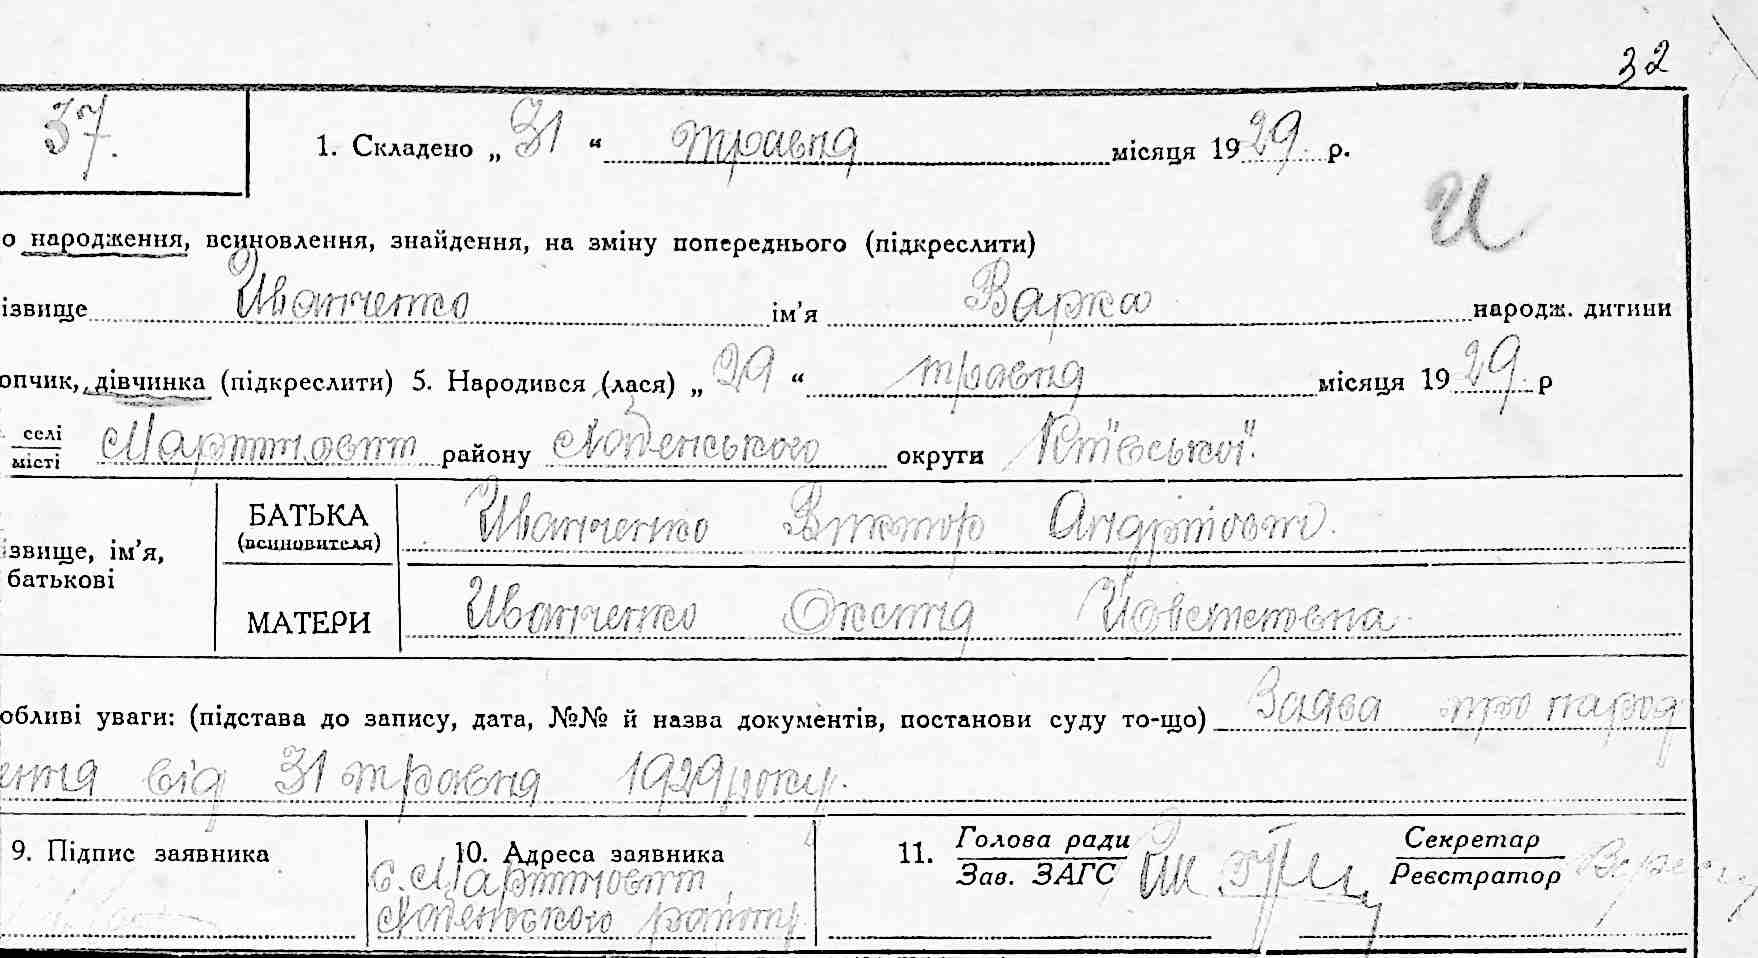 32
37.
1. Складено „ 31 “ травня місяця 1929 р.
И
о народження, всиновлення, знайдення, на зміну попереднього (підкреслити)
ізвище Иванченко ім’я Варка народж. дитини
опчик, дівчинка (підкреслити) 5. Народився (лася) „ 29 “ травня місяця 1929 р
селі
місті Мартиновки району округи Київської
БАТЬКА
(всиновителя) Иванченко Виктор Андрійови
ізвище, ім’я,
батькові
МАТЕРИ Иванченко Оксенія
обливі уваги: (підстава до запису, дата, №№ й назва документів, постанови суду то-що) Заява про народ
ення від 31 травня 1929 року.
9. Підпис заявника
10. Адреса заявника
с. Мартиновки
району
11. Голова ради
Зав. ЗАГС
Секретар
Реєстратор